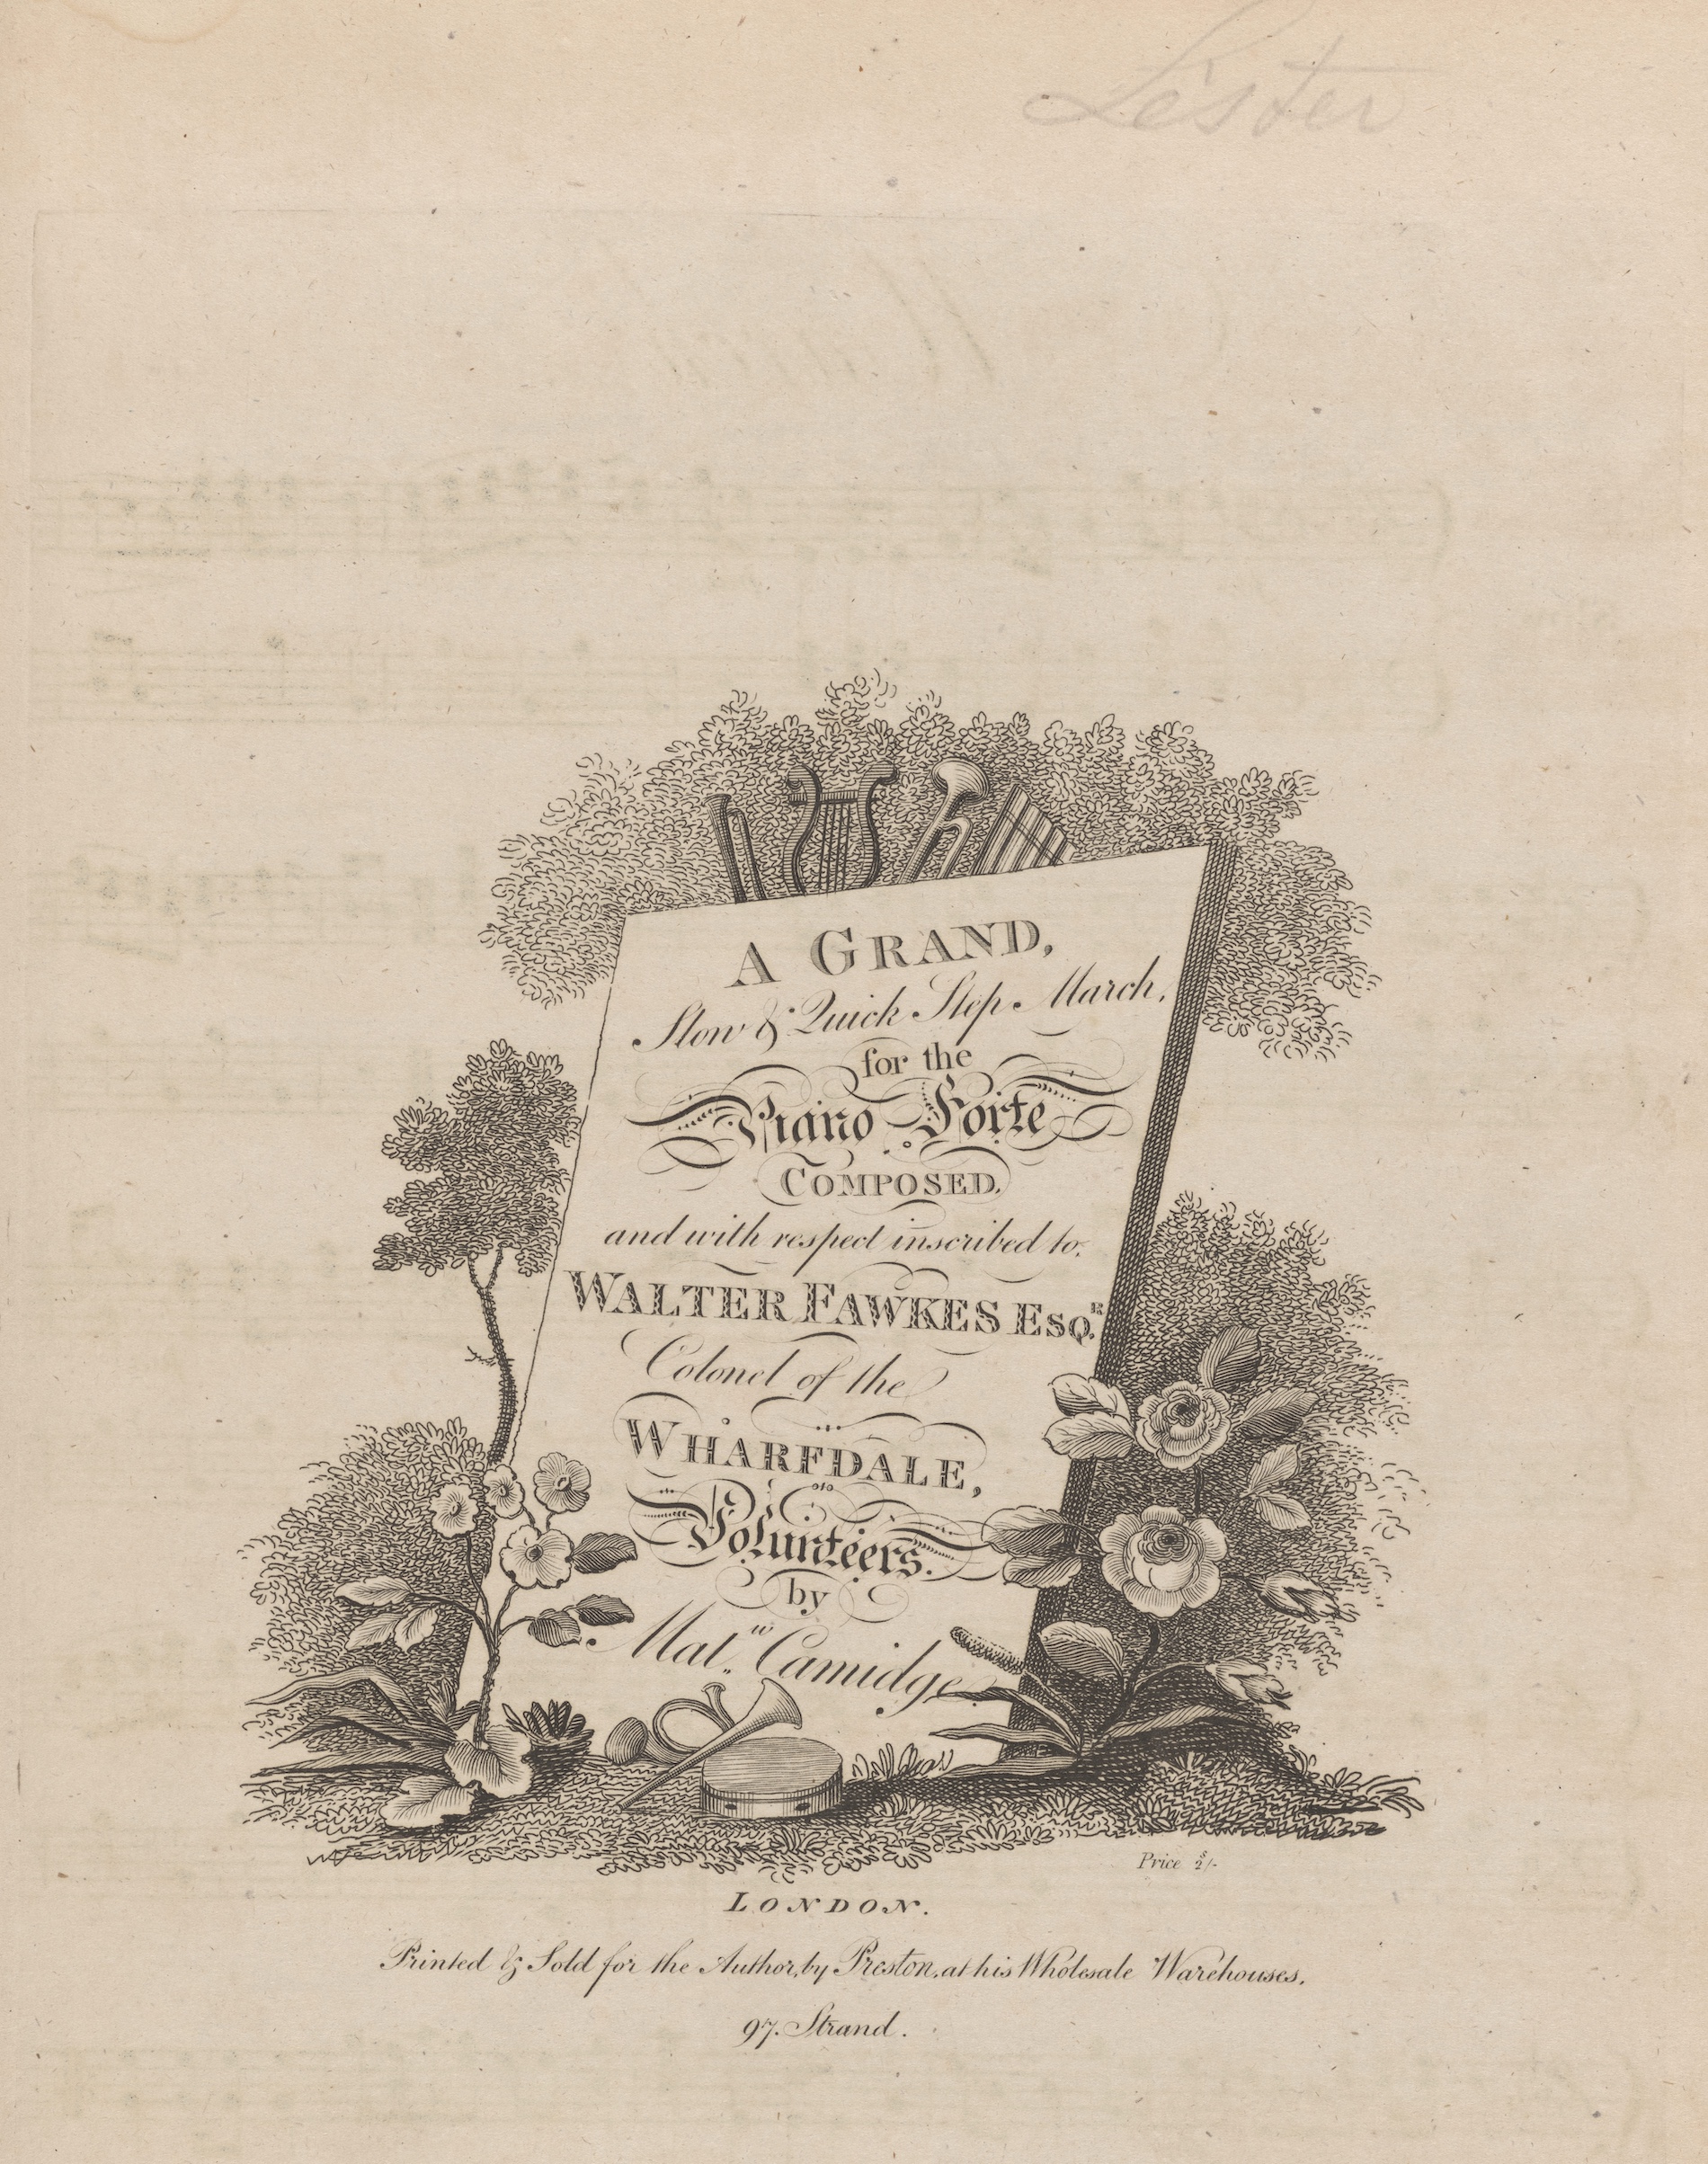 Lester
A GRAND,
Slow & Quick Step March,
for the
Piano Forte
COMPOSED,
and with respect inscribed to,
WALTER FAWKES ESQ.R
Colonel of the
WHARFDALE,
Volunteers.
by
Mat.w Camidge.
Price 2/-
LONDON.
Printed & Sold for the Author, by Preston, at his Wholesale Warehouses,
97. Strand.